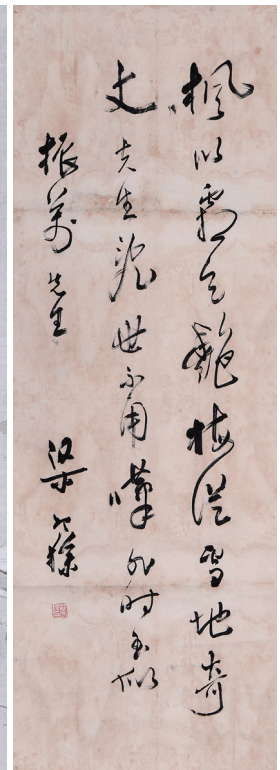 楓以霜天艷梅從雪地奇
丈夫生世不用嘆非時書似
振萬先生 梁寒操